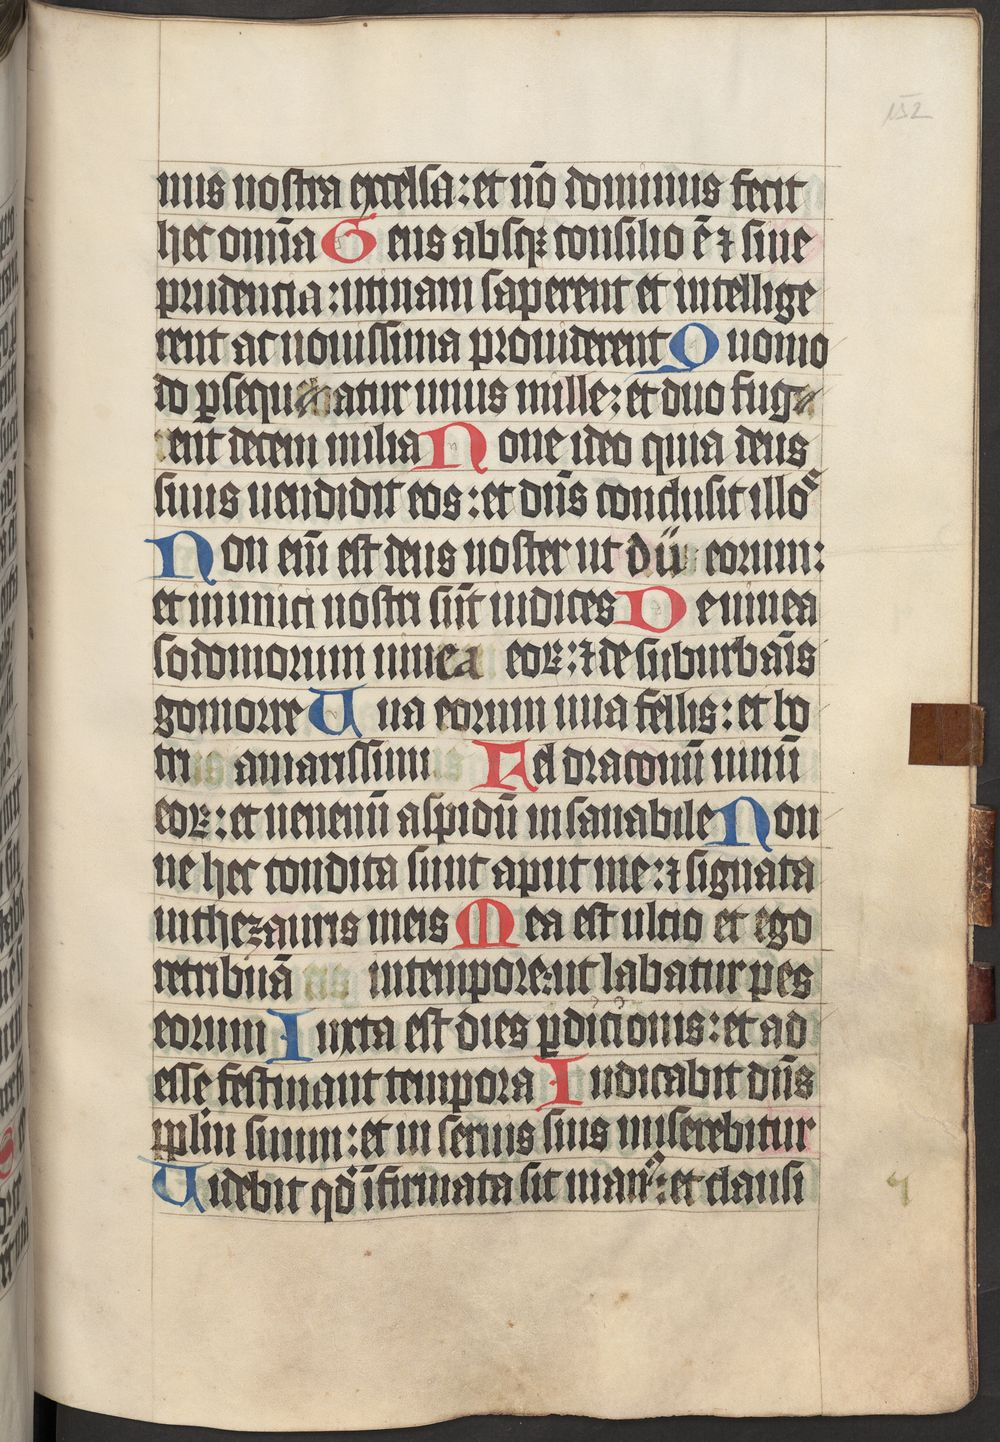 152
nus nostra excelsa: et nō dominus fecit
hec omīa Gens absqꝫ consilio ē ⁊ sine
prudencia: utinam saperent et intellige
rent ac nouissima prouiderent Quomo
do ꝑsequebatur unus mille: et duo fuga
rent decem milia Nonne ideo quia deus
suus uendidit eos: et dn̄s conclusit illoˢ
Non em̄ est deus noster ut dii eorum:
et inimici nostri sūt iudices De uinea
sodomorum uinea eoꝝ: ⁊ de suburbāis
gomorre Uua eorum uua fellis: et bo
tri amarissimi Fel draconū uinū
eoꝝ: et uenenū aspidū insanabile Non
ne hec condita sunt aput me: ⁊ signata
in thezauris meis Mea est ulcio et ego
retribuā in tempore: ut labatur pes
eorum Iuxta est dies ꝑdicionis: et ad
esse festinant tempora Iudicabit dn̄s
pplm̄ suum: et in seruis suis miserebitur
Uidebit qd̄ īfirmata sit manˀ: et clausi